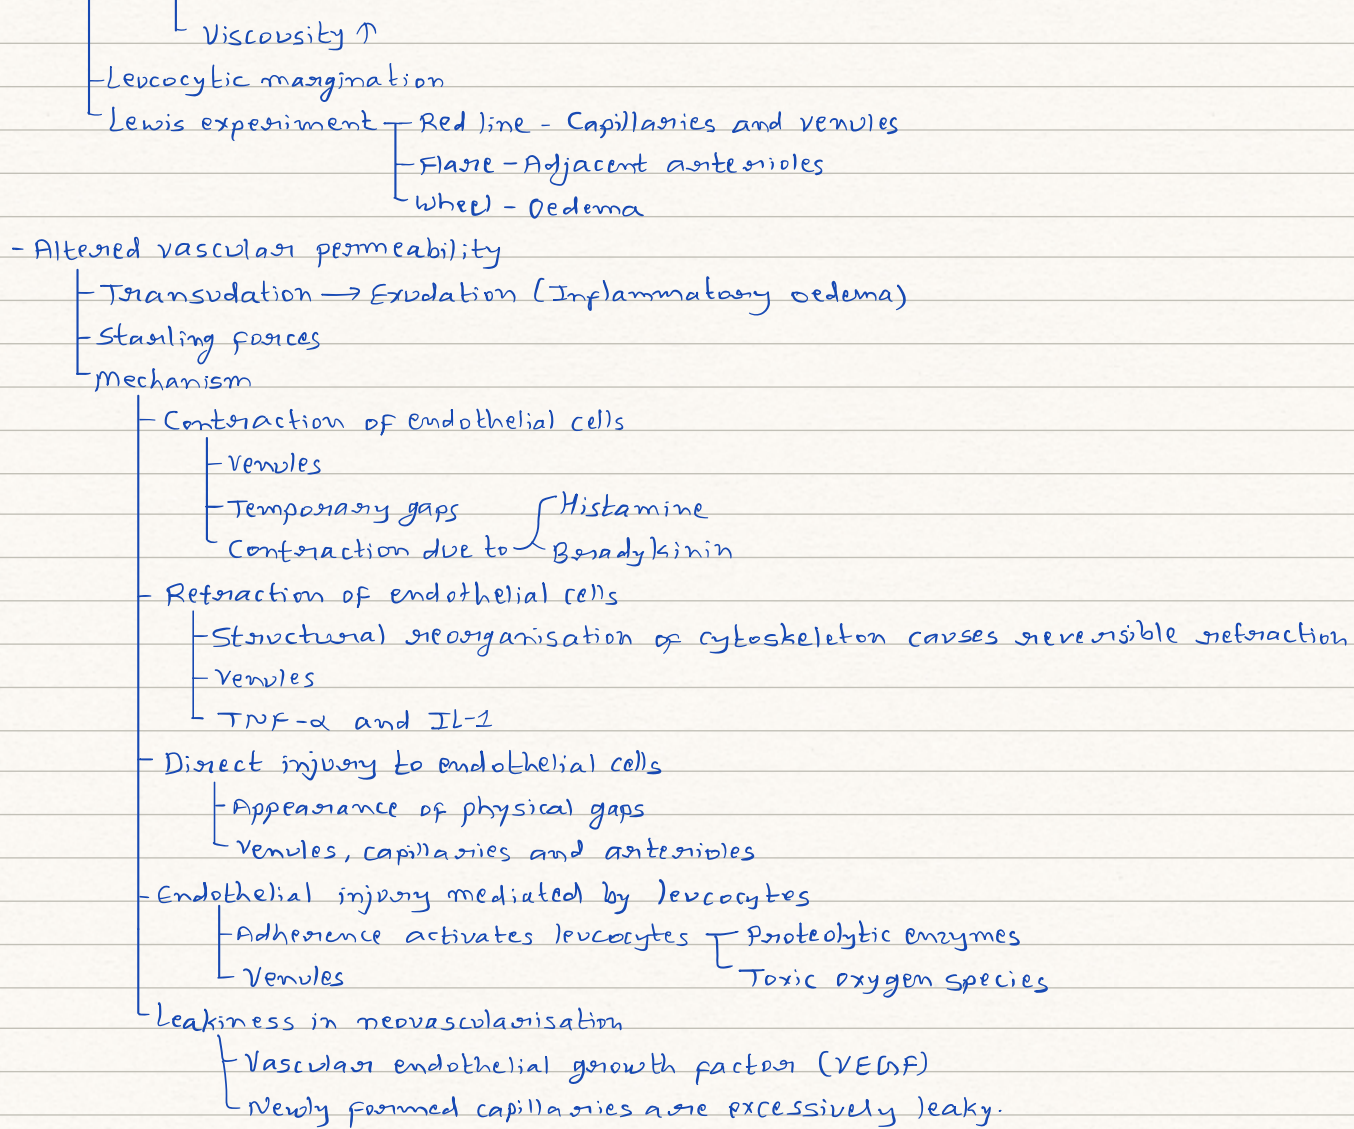 Viscousity ↑
Leucocytic margination
Lewis experiment Red line - Capillaries and venules
Flare - Adjacent arterioles
Wheel - Oedema
- Altered vascular permeability
Transudation → Exudation (Inflammatory oedema)
Starling forces
Mechanism
Contraction of endothelial cells
Venules
Temporary gaps Histamine
Contraction due to Bradykinin
Retraction of endothelial cells
Structural reorganisation of cytoskeleton causes reversible retraction
Venules
TNF-α and IL-1
Direct injury to endothelial cells
Appearance of physical gaps
Venules, capillaries and arterioles
Endothelial injury mediated by leucocytes
Adherence activates leucocytes Proteolytic enzymes
Venules Toxic oxygen species
Leakiness in neovascularisation
Vascular endothelial growth factor (VEGF)
Newly formed capillaries are excessively leaky.